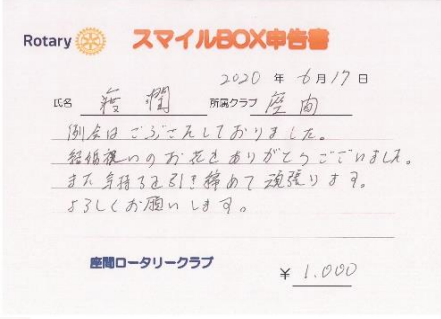 Rotary
スマイルBOX申告書
2020 年 6 月 17 日
氏名 所属クラブ 座間
例会はごぶさたしておりました。
結婚祝いのお花をありがとうございました。
また気持ちを引き締めて頑張ります。
よろしくお願いします。
座間ロータリークラブ
¥ 1.000